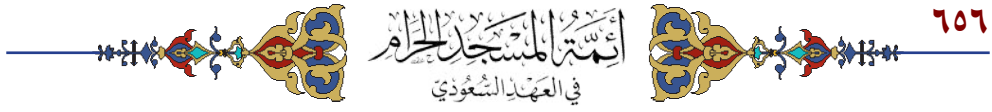 ٦٥٦
أئمة المسجد الحرام
في العهد السعودي